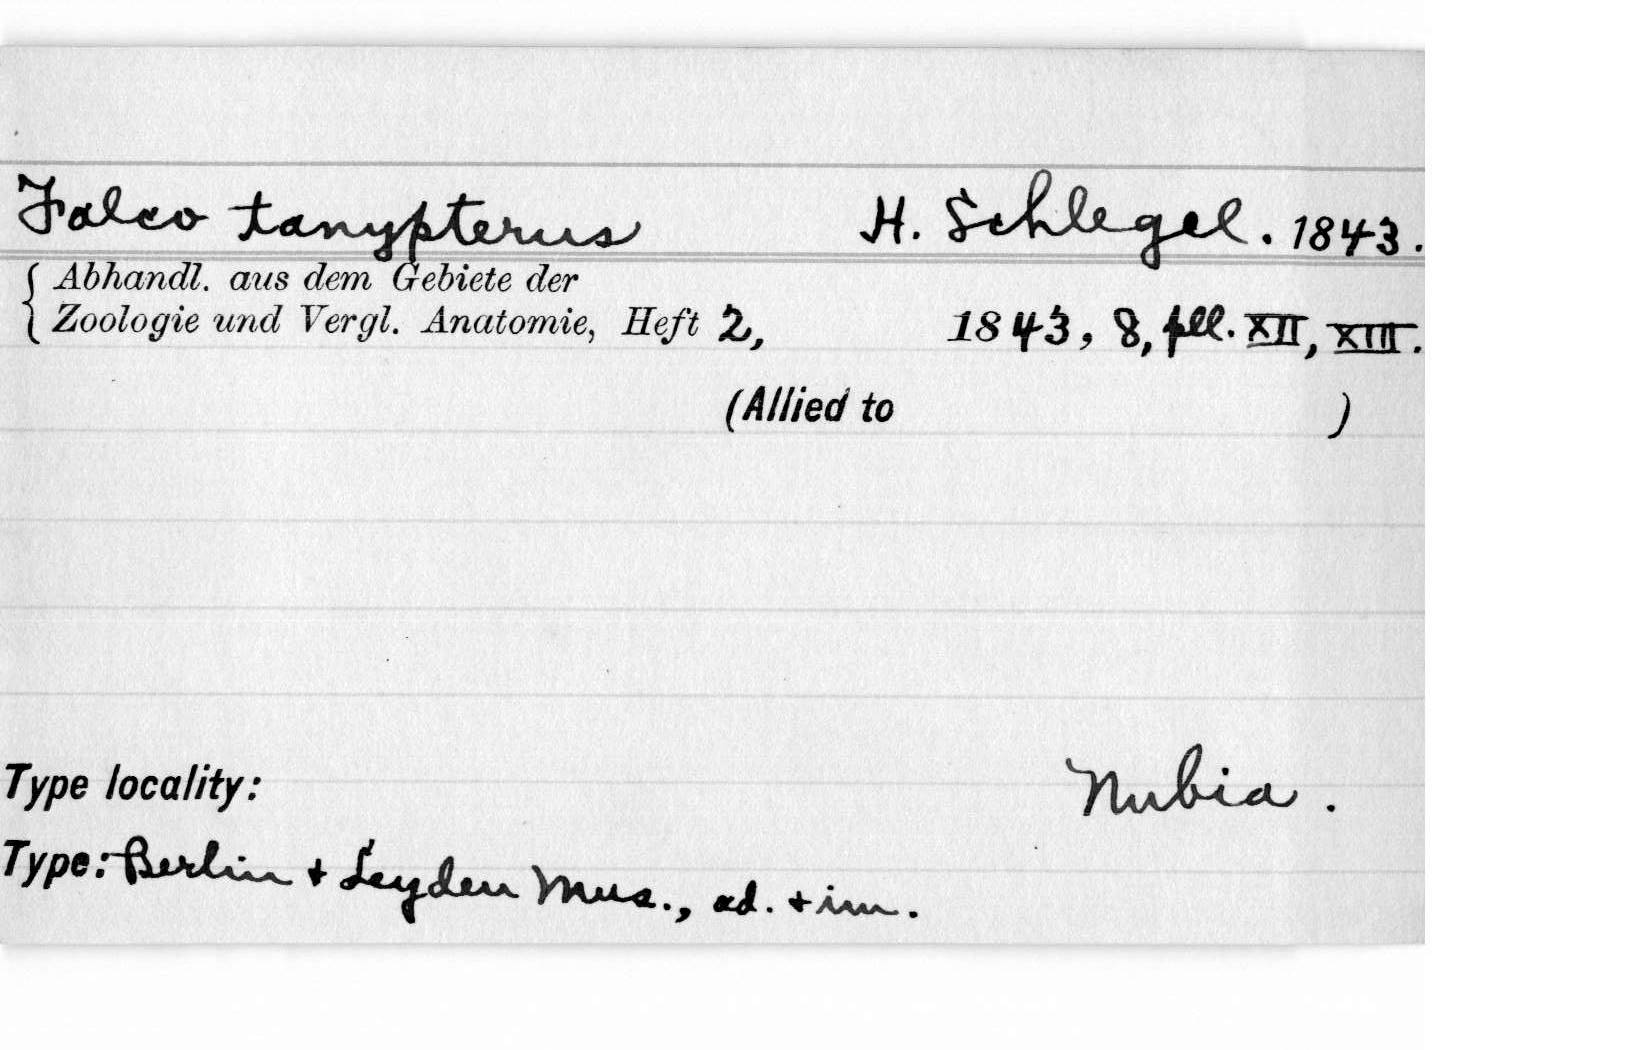 Falco tanypterus H. Schlegel. 1843.
{ Abhandl. aus dem Gebiete der
Zoologie und Vergl. Anatomie, Heft 2, 1843, 8, pll. XII, XIII.
(Allied to )
Type locality: Nubia.
Type: Berlin + Leyden Mus., ad. + im.